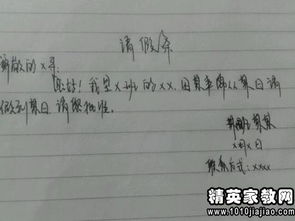 请假条
尊敬的x哥:
您好! 我是x班的xx. 因某事得从某日请
假到某日 请您批准.
某某
x月x日
联系方式: xxxx
精英家教网
www.1010jiajiao.com